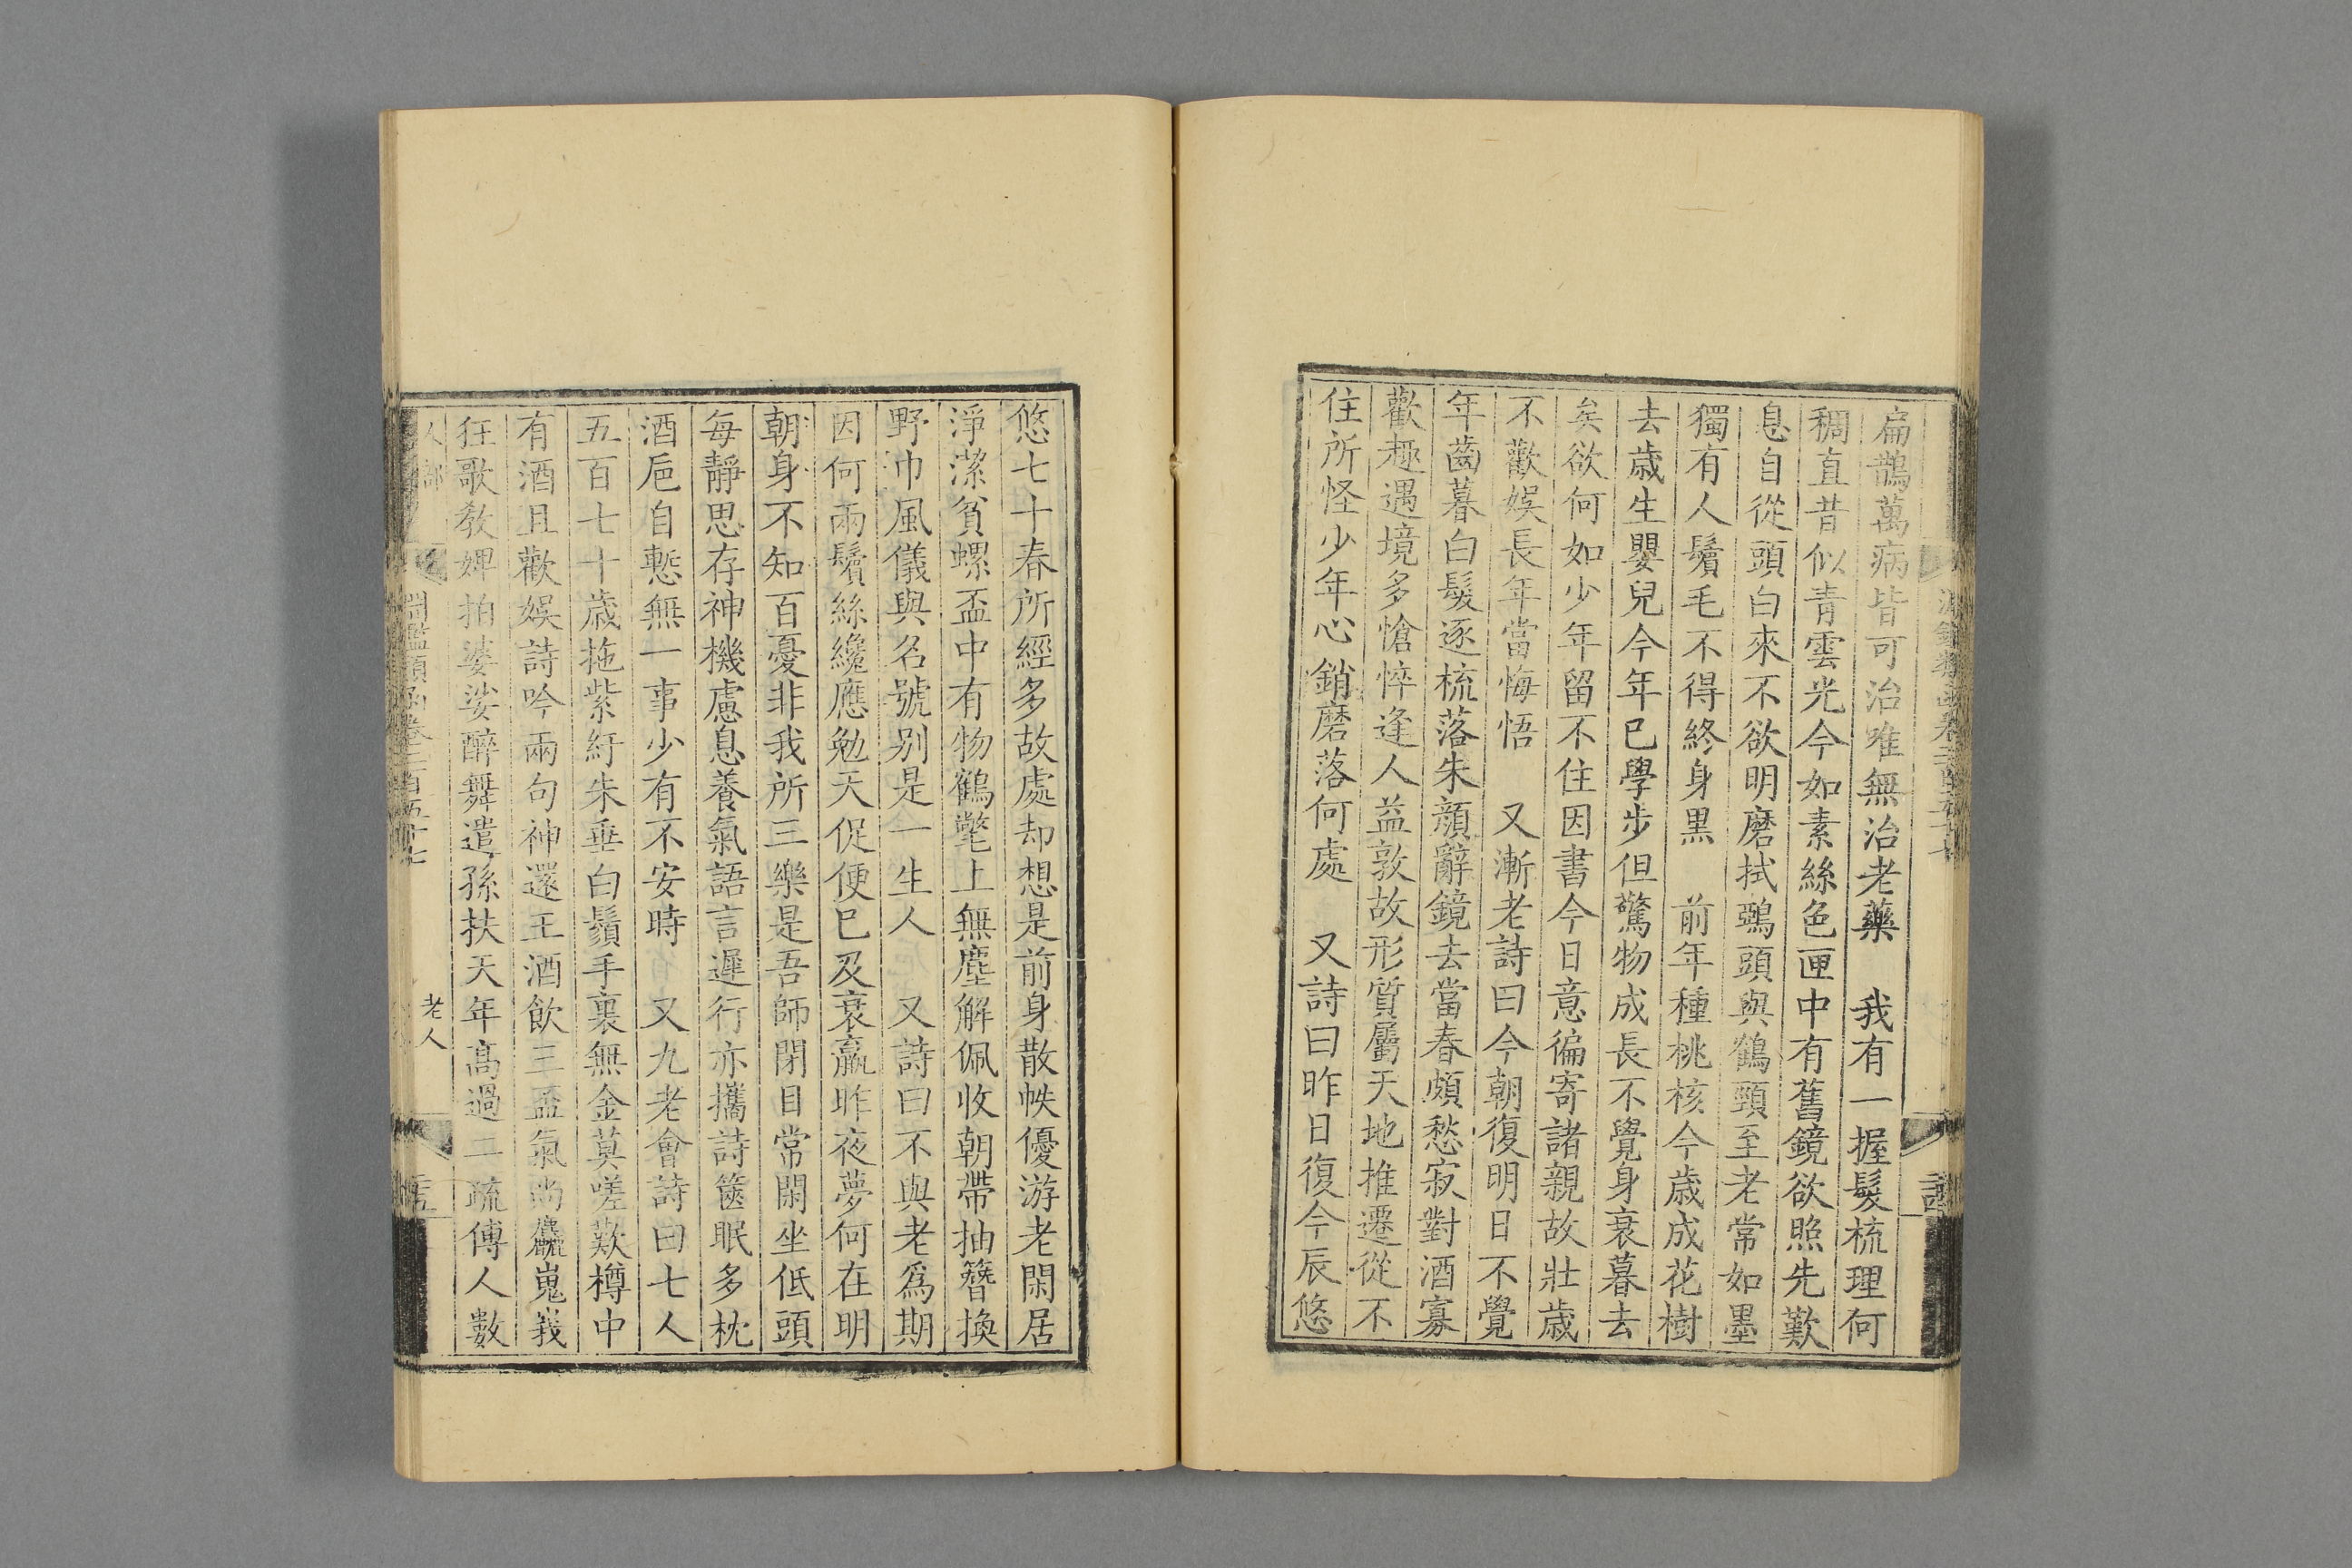 扁鵲萬病皆可治唯無治老藥　我有一握髮梳理何
稠直昔似青雲光今如素絲色匣中有舊鏡欲照先歎
息自從頭白來不欲明磨拭鵶頭與鶴頸至老常如墨
獨有人鬢毛不得終身黑　前年種桃核今歲成花樹
去歲生嬰兒今年已學步但驚物成長不覺身衰暮去
矣欲何如少年留不住因書今日意徧寄諸親故壯歲
不歡娛長年當悔悟　又漸老詩曰今朝復明日不覺
年齒暮白髮逐梳落朱顏辭鏡去當春頗愁寂對酒寡
歡趣遇境多愴悴逢人益敦故形質屬天地推遷從不
住所怪少年心銷磨落何處　又詩曰昨日復今辰悠
悠七十春所經多故處却想是前身散帙優游老閑居
淨潔貧螺盃中有物鶴氅上無塵解佩收朝帶抽簪換
野巾風儀與名號别是一生人　又詩曰不與老爲期
因何兩鬢絲纔應勉夭促便已及衰羸昨夜夢何在明
朝身不知百憂非我所三樂是吾師閉目常閑坐低頭
每靜思存神機慮息養氣語言遲行亦攜詩篋眠多枕
酒巵自慙無一事少有不安時　又九老會詩曰七人
五百七十歲拖紫紆朱垂白鬚手裏無金莫嗟歎樽中
有酒且歡娛詩吟兩句神還王酒飲三盃氣尚麤嵬峩
狂歌敎婢拍婆娑醉舞遣孫扶天年高過二疏傅人數
人部　淵鑑類函卷二百五十七　老人